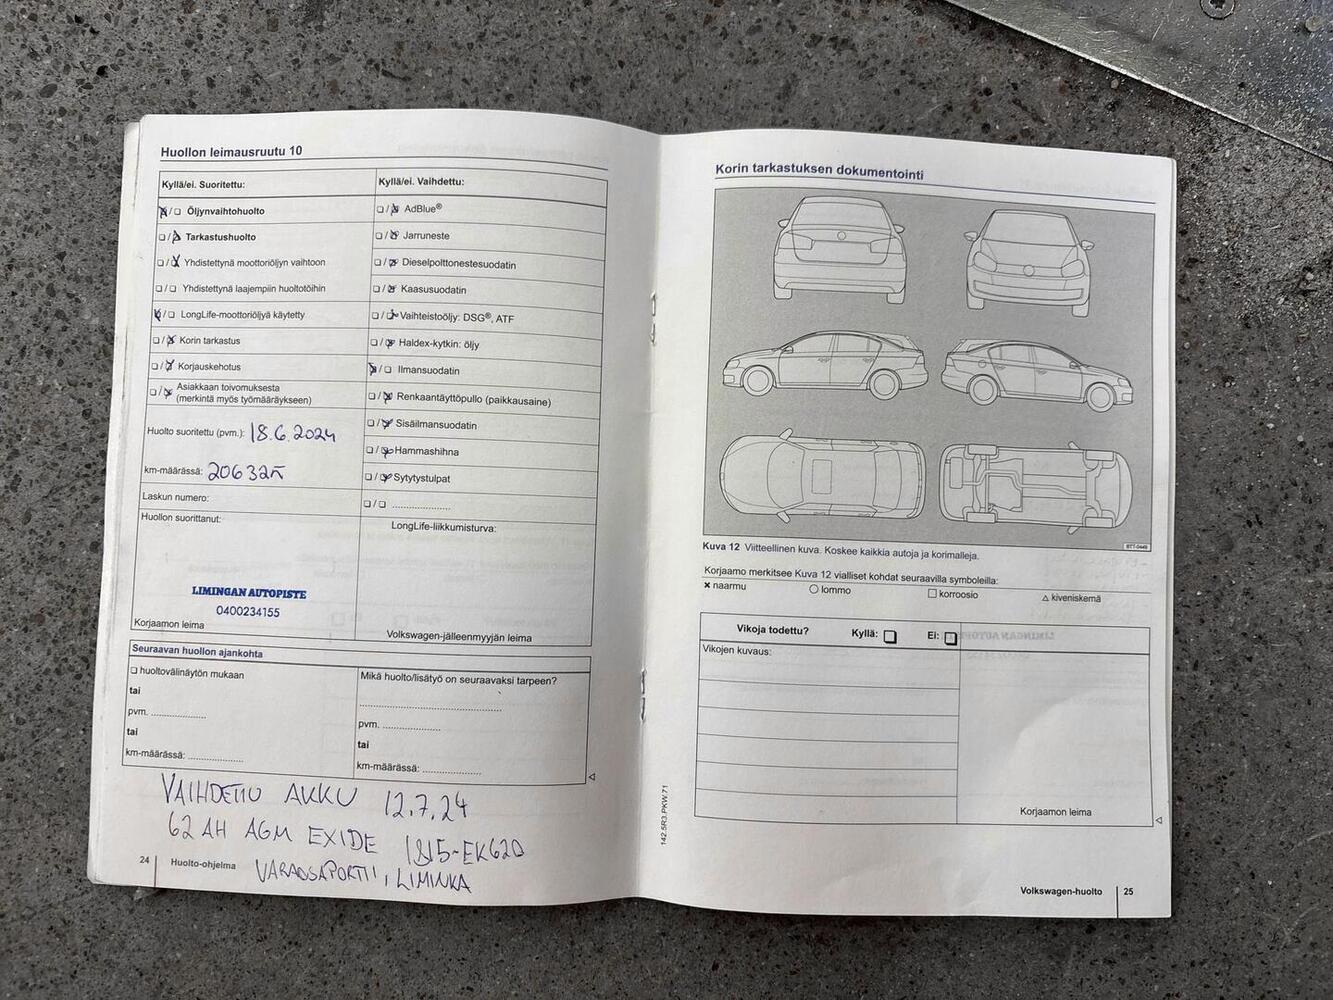 Huollon leimausruutu 10
Kyllä/ei. Suoritettu:
☒/☐ Öljynvaihtohuolto
☐/☒ Tarkastushuolto
☐/☒ Yhdistettynä moottoriöljyn vaihtoon
☐/☐ Yhdistettynä laajempiin huoltotöihin
☒/☐ LongLife-moottoriöljyä käytetty
☐/☒ Korin tarkastus
☐/☒ Korjauskehotus
☐/☒ Asiakkaan toivomuksesta
(merkintä myös työmääräykseen)
Huolto suoritettu (pvm.): 18.6.2024
km-määrässä:
Laskun numero:
Huollon suorittanut:
LIMINGAN AUTOPISTE
0400234155
Korjaamon leima
Kyllä/ei. Vaihdettu:
☐/☒ AdBlue®
☐/☒ Jarruneste
☐/☒ Dieselpolttonestesuodatin
☐/☒ Kaasusuodatin
☐/☒ Vaihteistoöljy: DSG®, ATF
☐/☒ Haldex-kytkin: öljy
☒/☐ Ilmansuodatin
☐/☒ Renkaantäyttöpullo (paikkausaine)
☐/☒ Sisäilmansuodatin
☐/☒ Hammashihna
☐/☒ Sytytystulpat
☐/☐ ......................
LongLife-liikkumisturva:
Volkswagen-jälleenmyyjän leima
Seuraavan huollon ajankohta
☐ huoltovälinäytön mukaan
tai
pvm. ....................
tai
km-määrässä: ....................
Mikä huolto/lisätyö on seuraavaksi tarpeen?
pvm. ....................
tai
km-määrässä: ....................
VAIHDETTU AKKU 12.7.24
62 AH AGM EXIDE 1815-EK620
VARAOSAPORTTI, LIMINKA
24 Huolto-ohjelma
Korin tarkastuksen dokumentointi
BTT-0449
Kuva 12 Viitteellinen kuva. Koskee kaikkia autoja ja korimalleja.
Korjaamo merkitsee Kuva 12 vialliset kohdat seuraavilla symboleilla:
✕ naarmu ○ lommo ☐ korroosio △ kiveniskemä
Vikoja todettu? Kyllä: ☐ Ei: ☐
Vikojen kuvaus:
Korjaamon leima
142.5R3.PKW.71
Volkswagen-huolto 25